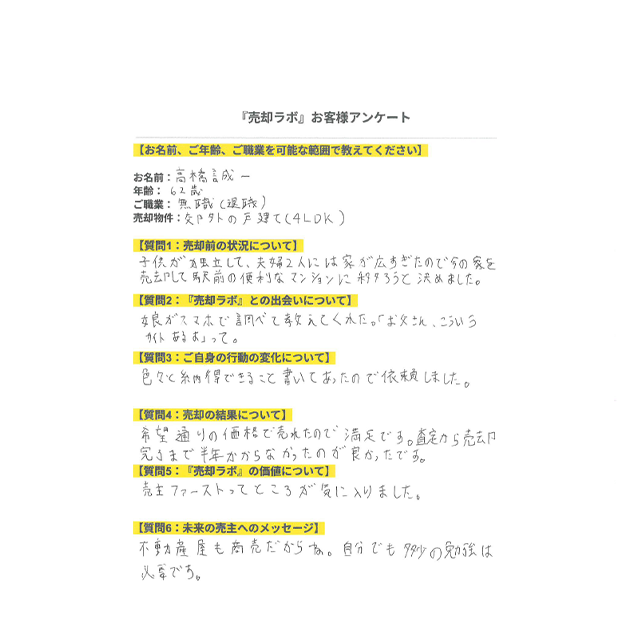 『売却ラボ』お客様アンケート
【お名前、ご年齢、ご職業を可能な範囲で教えてください】
お名前：高橋誠一
年齢： 62歳
ご職業： 無職(退職)
売却物件：郊外の戸建て(4LDK)
【質問1：売却前の状況について】
子供が独立して、夫婦2人には家が広すぎたので今の家を
売却して駅前の便利なマンションに移ろうと決めました。
【質問2：『売却ラボ』との出会いについて】
娘がスマホで調べて教えてくれた。「お父さん、こういう
サイトあるよ」って。
【質問3：ご自身の行動の変化について】
色々と納得できること書いてあったので依頼しました。
【質問4：売却の結果について】
希望通りの価格で売れたので満足です。査定から売却
完了まで半年かからなかったのが良かったです。
【質問5：『売却ラボ』の価値について】
売主ファーストってところが気に入りました。
【質問6：未来の売主へのメッセージ】
不動産屋も商売だからね。自分でも多少の勉強は
必要です。